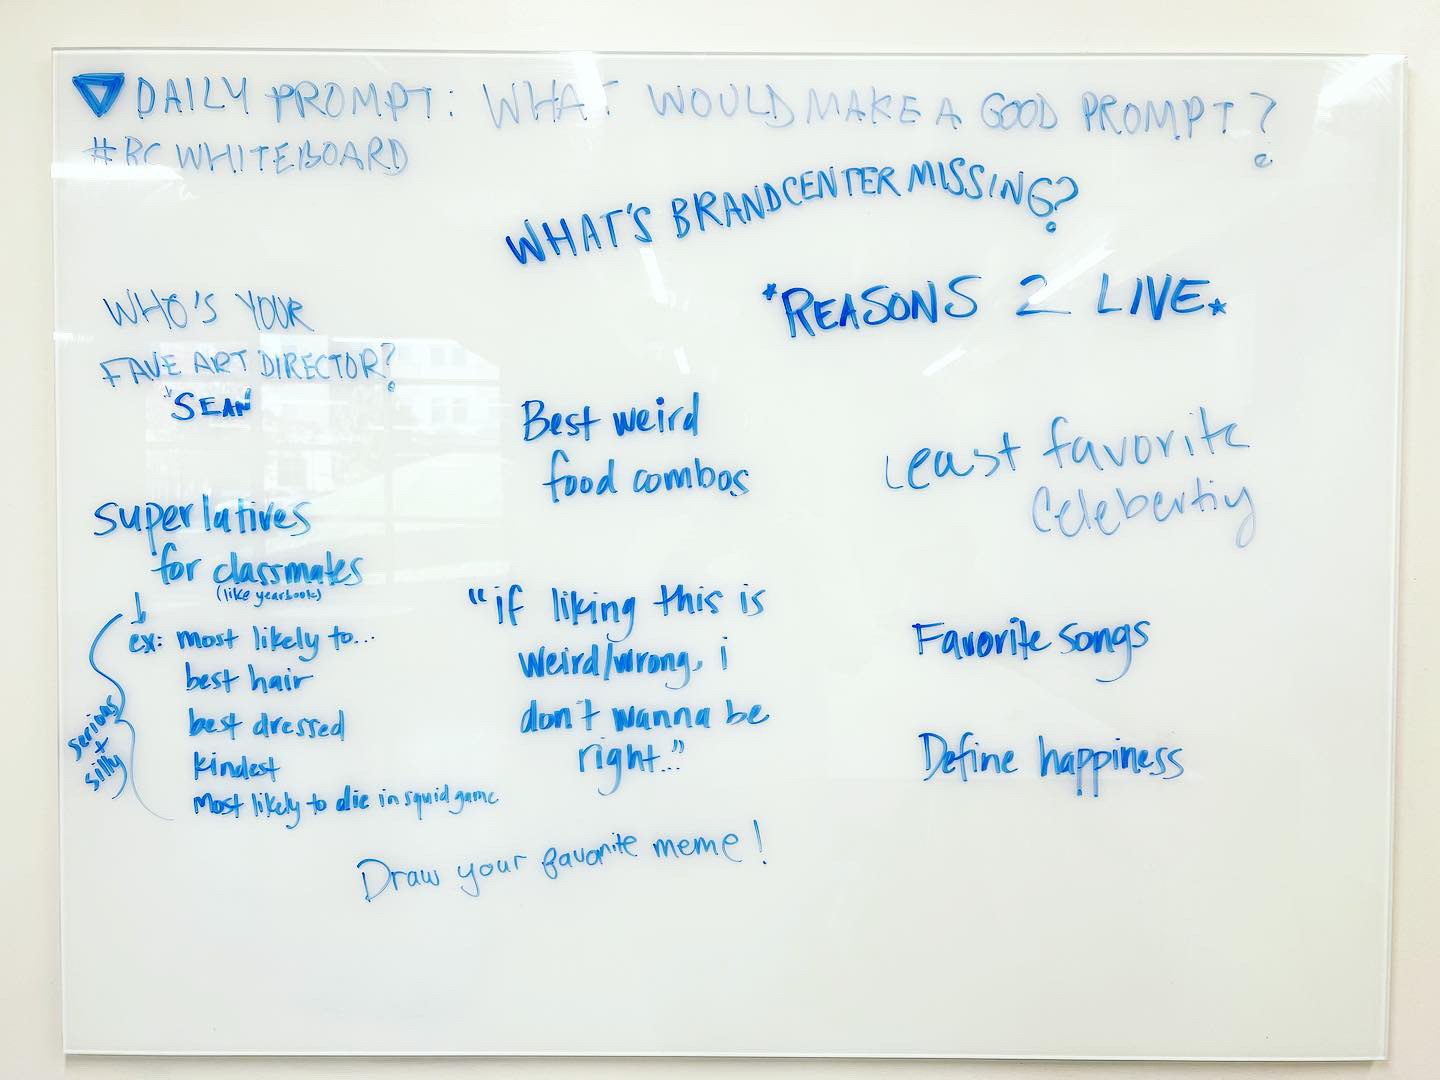 DAILY PROMPT: WHAT WOULD MAKE A GOOD PROMPT?
#BCWHITEBOARD
WHAT'S BRANDCENTER MISSING?
*REASONS 2 LIVE*
WHO'S YOUR
FAVE ART DIRECTOR?
"SEAN"
Best weird
food combos
Least favorite
Celebertiy
superlatives
for classmates
(like yearbook)
ex: most likely to...
best hair
best dressed
kindest
most likely to die in squid game
serious
+
silly
"if liking this is
weird/wrong, i
don't wanna be
right..."
Favorite songs
Define happiness
Draw your favorite meme!